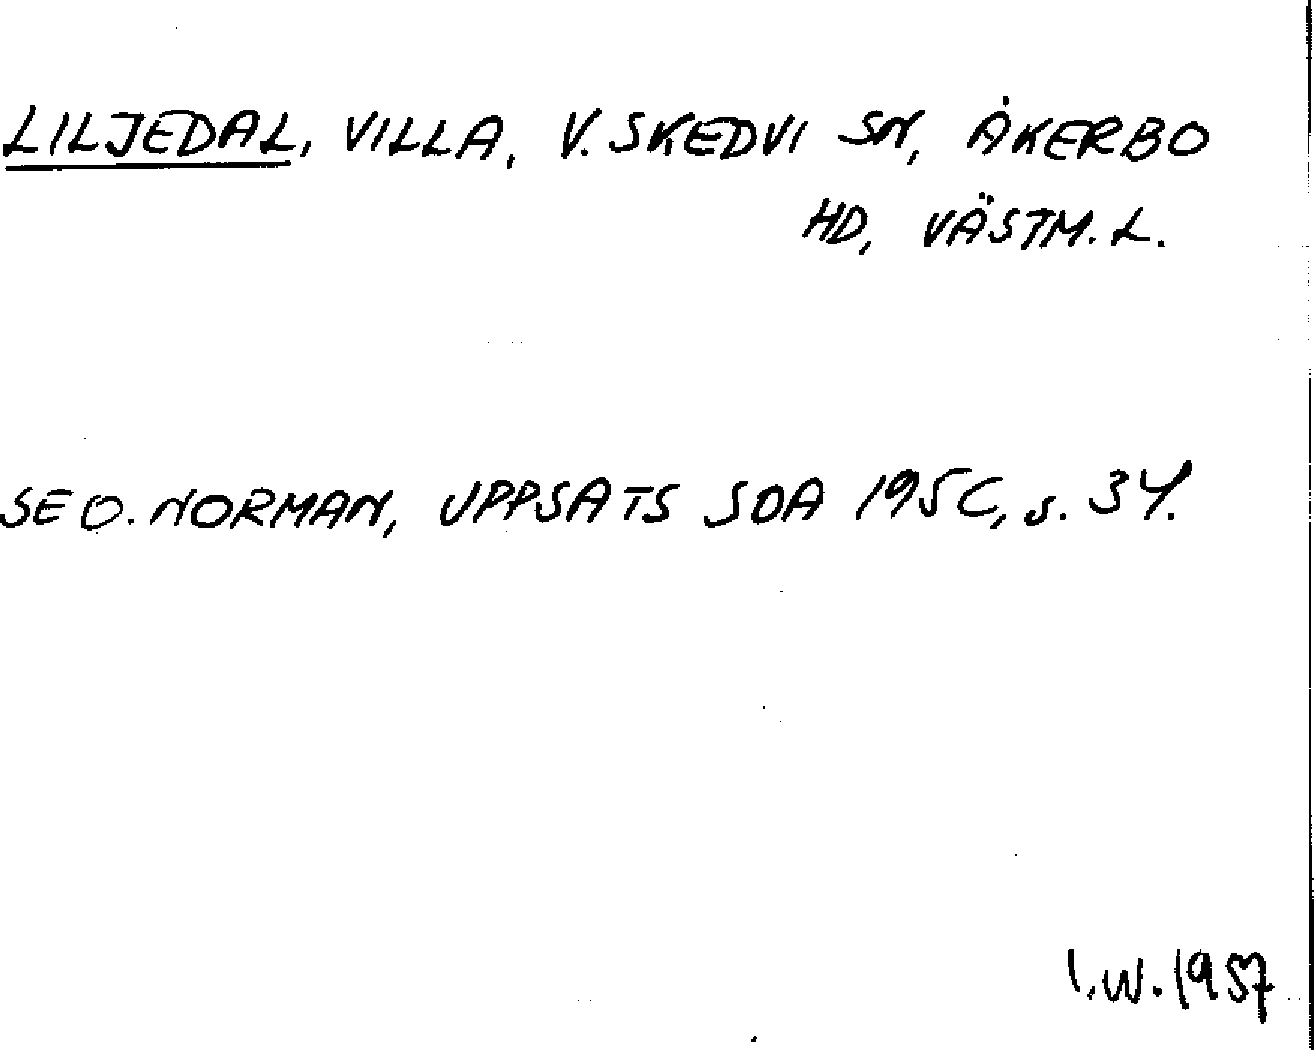 LILJEDAL, VILLA, V. SKEDVI SN, ÅKERBO
HD, VÄSTM. L.
SE O. NORMAN, UPPSATS SOA 195C, s. 34.
I.W. 1957